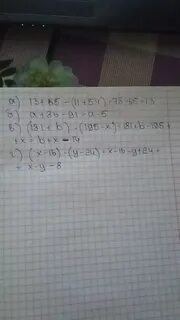 а) 13+65-(11+54)=78-65=13
б) a+36-91=a-5
в) (181+b)-(195-x)=181+b-195+
+x=b+x-14
г) (x-16)-(y-24)=x-16-y+24=
=x-y-8